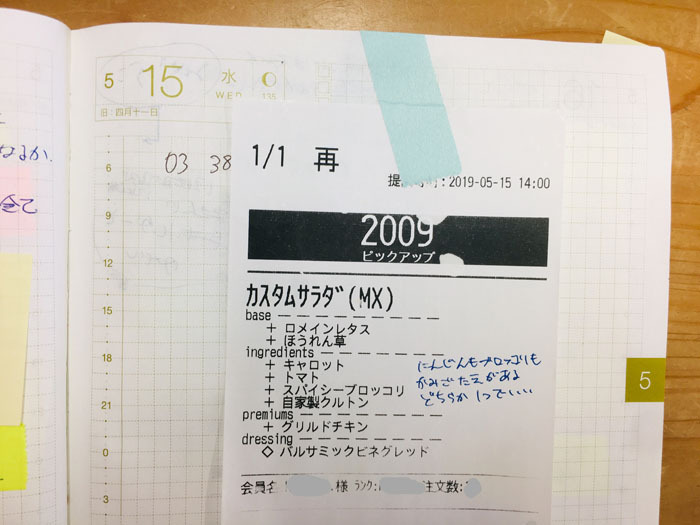 5 15 水
WED 135
旧 四月十一日
なるか.
6
9
12
15
18
21
0
3
03 38
1/1 再
:2019-05-15 14:00
2009
ピックアップ
カスタムサラダ(MX)
base
+ ロメインレタス
+ ほうれん草
ingredients
+ キャロット
+ トマト
+ スパイシーブロッコリ
+ 自家製クルトン
premiums
+ グリルドチキン
dressing
◇ バルサミックビネグレッド
会員名: 様 ランク: 注文数:
にんじんもブロッコリも
かみごたえがある
どちらか1つでいい
5